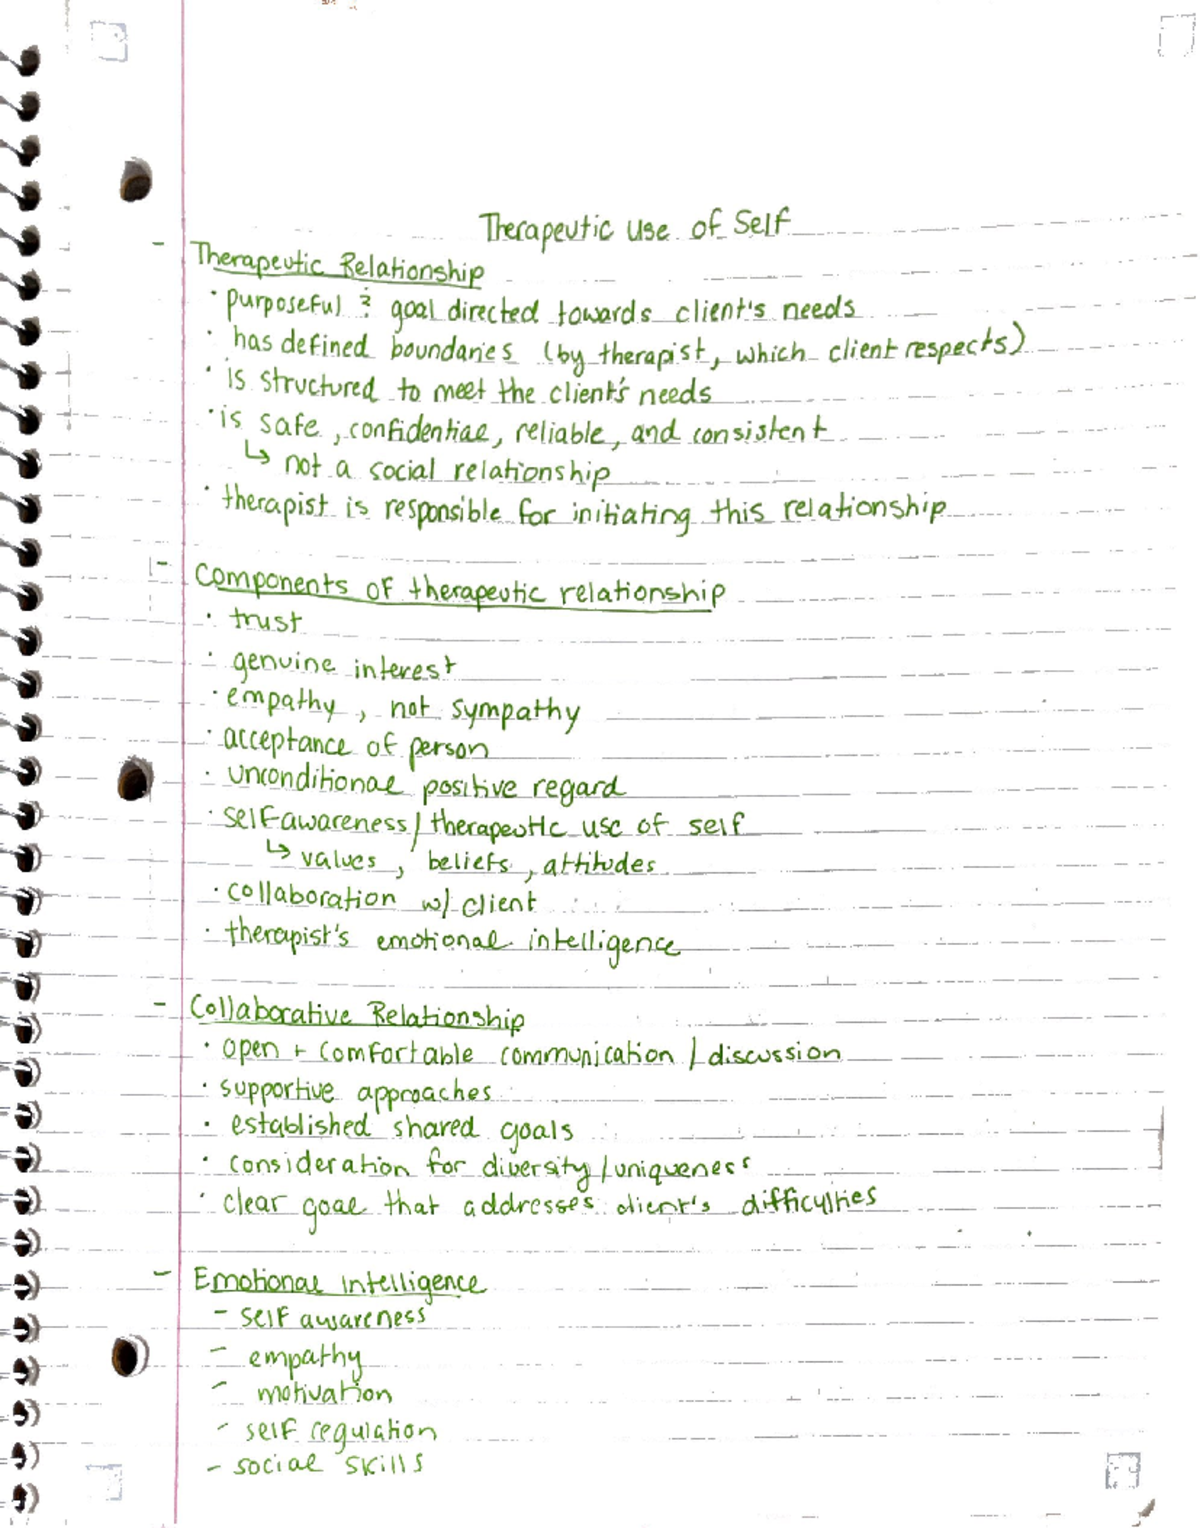 Therapeutic Use of Self
- Therapeutic Relationship
· purposeful & goal directed towards client's needs
· has defined boundaries (by therapist, which client respects)
· is structured to meet the client's needs
· is safe, confidential, reliable, and consistent
↳ not a social relationship
· therapist is responsible for initiating this relationship
- Components of therapeutic relationship
· trust
· genuine interest
· empathy, not sympathy
· acceptance of person
· unconditional positive regard
· self awareness / therapeutic use of self
↳ values, beliefs, attitudes
· collaboration w/ client
· therapist's emotional intelligence
- Collaborative Relationship
· open + comfortable communication / discussion
· supportive approaches
· established shared goals
· consideration for diversity / uniqueness
· clear goal that addresses client's difficulties
- Emotional intelligence
- self awareness
- empathy
- motivation
- self regulation
- social skills